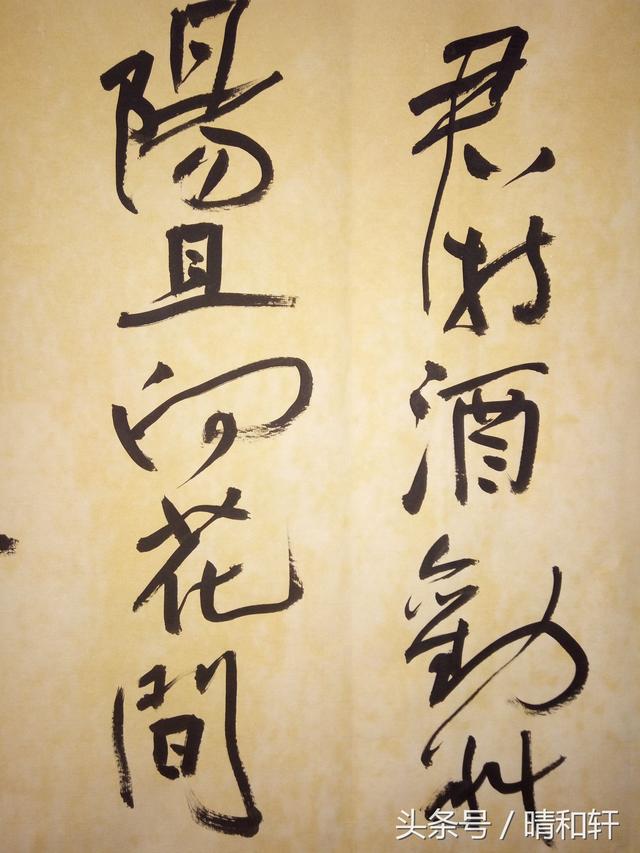 君持酒勸斜
陽且向花間
头条号／晴和轩